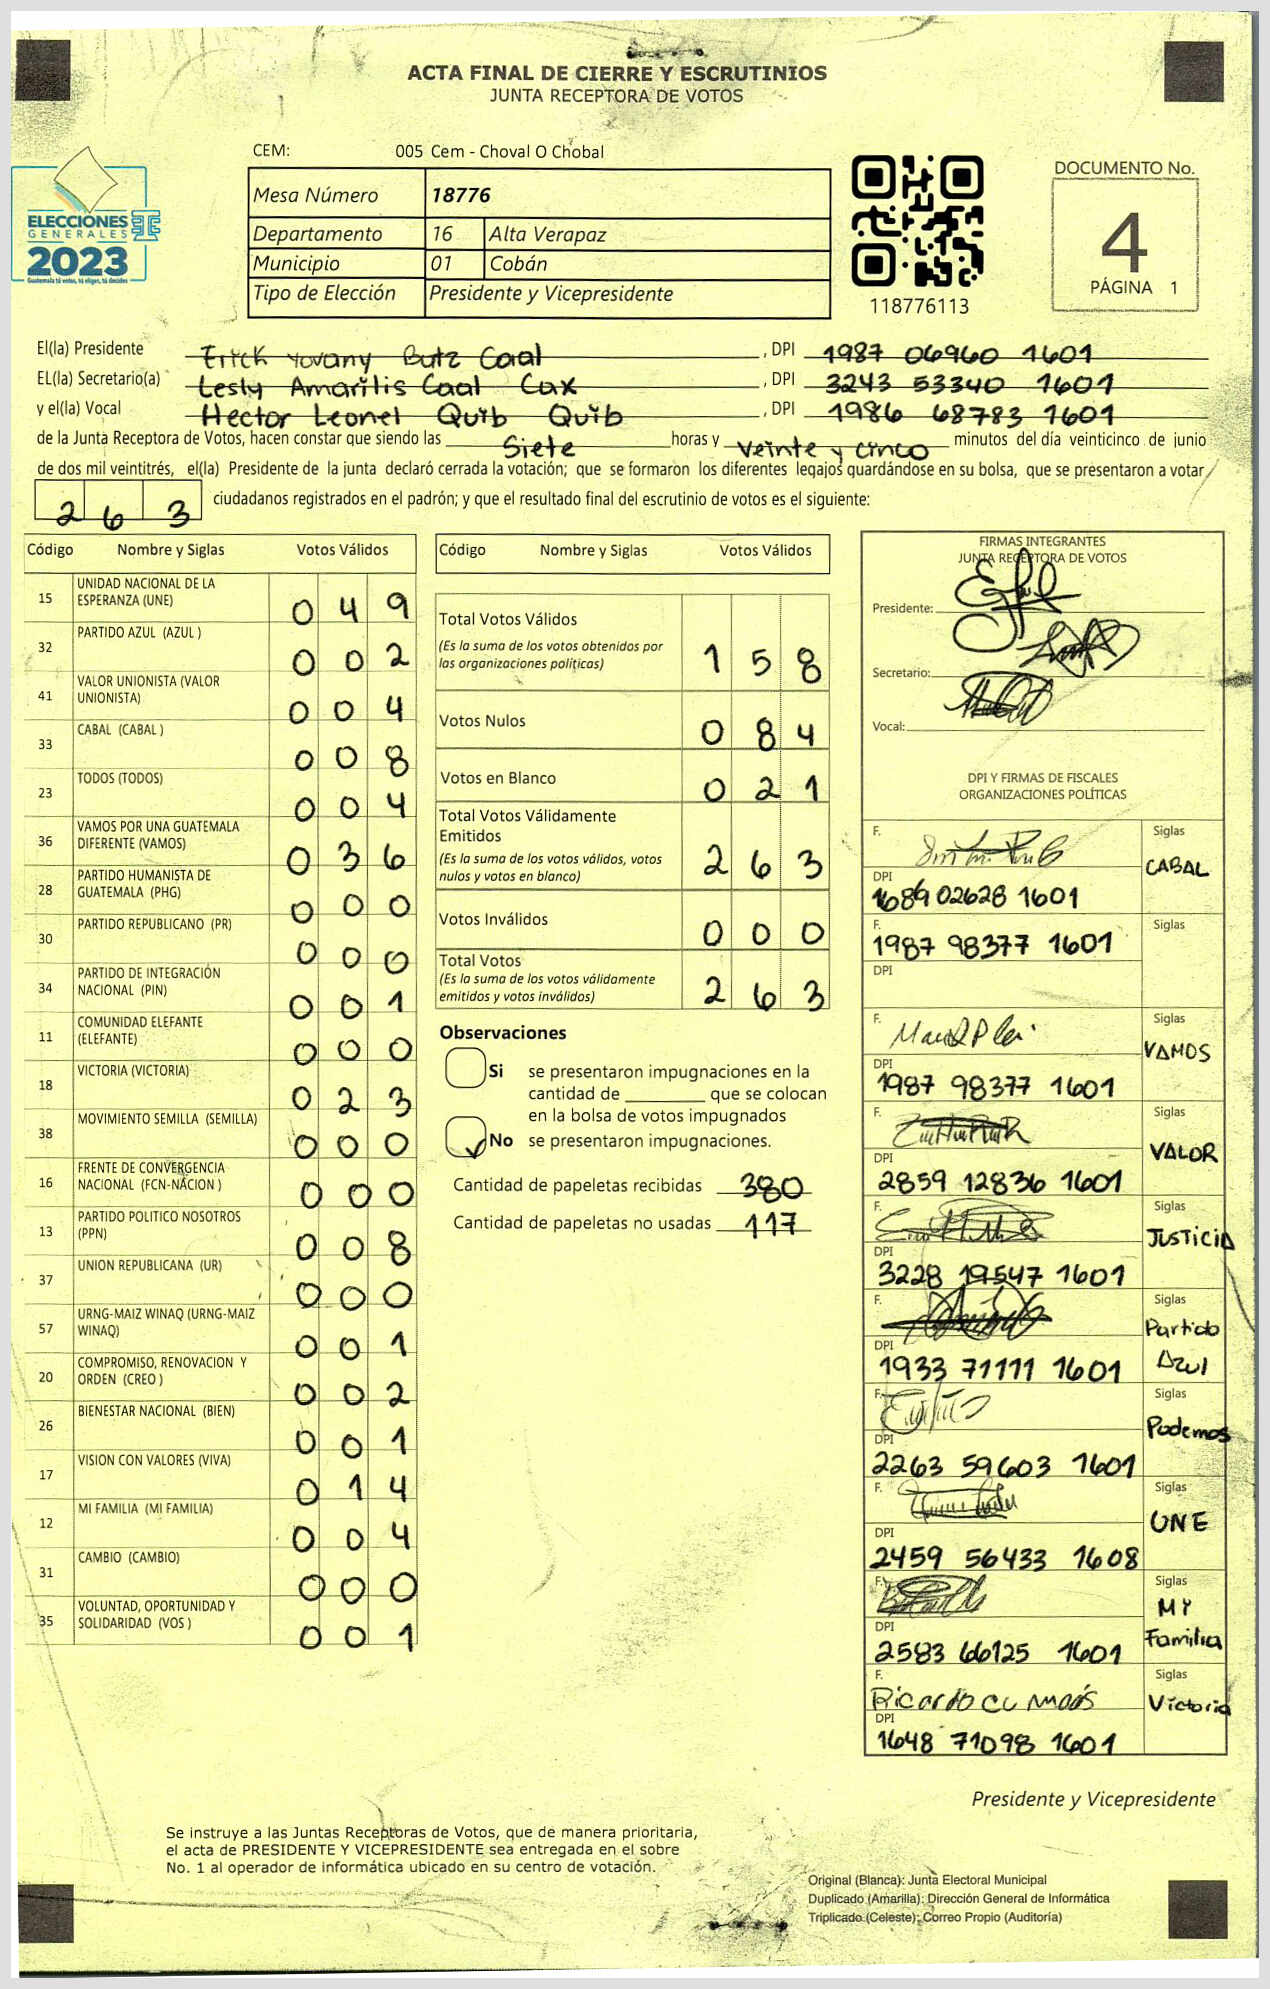 ACTA FINAL DE CIERRE Y ESCRUTINIOS
JUNTA RECEPTORA DE VOTOS
CEM: 005 Cem - Choval O Chobal
Mesa Número 18776
Departamento 16 Alta Verapaz
Municipio 01 Cobán
Tipo de Elección Presidente y Vicepresidente
ELECCIONES
GENERALES
2023
Guatemala tú votas, tú eliges, tú decides
118776113
DOCUMENTO No.
4
PÁGINA 1
El(la) Presidente Erick Yovany Butz Caal , DPI 1987 06960 1601
EL(la) Secretario(a) Lesly Amarilis Caal Cax , DPI 3243 53340 1601
y el(la) Vocal Hector Leonel Quib Quib , DPI 1986 68783 1601
de la Junta Receptora de Votos, hacen constar que siendo las Siete horas y Veinte y cinco minutos del día veinticinco de junio
de dos mil veintitrés, el(la) Presidente de la junta declaró cerrada la votación; que se formaron los diferentes legajos guardándose en su bolsa, que se presentaron a votar
263 ciudadanos registrados en el padrón; y que el resultado final del escrutinio de votos es el siguiente:
Código Nombre y Siglas Votos Válidos
15 UNIDAD NACIONAL DE LA ESPERANZA (UNE) 0 4 9
32 PARTIDO AZUL (AZUL ) 0 0 2
41 VALOR UNIONISTA (VALOR UNIONISTA) 0 0 4
33 CABAL (CABAL ) 0 0 8
23 TODOS (TODOS) 0 0 4
36 VAMOS POR UNA GUATEMALA DIFERENTE (VAMOS) 0 3 6
28 PARTIDO HUMANISTA DE GUATEMALA (PHG) 0 0 0
30 PARTIDO REPUBLICANO (PR) 0 0 0
34 PARTIDO DE INTEGRACIÓN NACIONAL (PIN) 0 0 1
11 COMUNIDAD ELEFANTE (ELEFANTE) 0 0 0
18 VICTORIA (VICTORIA) 0 2 3
38 MOVIMIENTO SEMILLA (SEMILLA) 0 0 0
16 FRENTE DE CONVERGENCIA NACIONAL (FCN-NACION ) 0 0 0
13 PARTIDO POLITICO NOSOTROS (PPN) 0 0 8
37 UNION REPUBLICANA (UR) 0 0 0
57 URNG-MAIZ WINAQ (URNG-MAIZ WINAQ) 0 0 1
20 COMPROMISO, RENOVACION Y ORDEN (CREO ) 0 0 2
26 BIENESTAR NACIONAL (BIEN) 0 0 1
17 VISION CON VALORES (VIVA) 0 1 4
12 MI FAMILIA (MI FAMILIA) 0 0 4
31 CAMBIO (CAMBIO) 0 0 0
35 VOLUNTAD, OPORTUNIDAD Y SOLIDARIDAD (VOS ) 0 0 1
Código Nombre y Siglas Votos Válidos
Total Votos Válidos
(Es la suma de los votos obtenidos por
las organizaciones políticas) 1 5 8
Votos Nulos 0 8 4
Votos en Blanco 0 2 1
Total Votos Válidamente
Emitidos
(Es la suma de los votos válidos, votos
nulos y votos en blanco) 2 6 3
Votos Inválidos 0 0 0
Total Votos
(Es la suma de los votos válidamente
emitidos y votos inválidos) 2 6 3
Observaciones
Si se presentaron impugnaciones en la
cantidad de ________ que se colocan
en la bolsa de votos impugnados
No se presentaron impugnaciones.
Cantidad de papeletas recibidas 380
Cantidad de papeletas no usadas 117
FIRMAS INTEGRANTES
JUNTA RECEPTORA DE VOTOS
Presidente:
Secretario:
Vocal:
DPI Y FIRMAS DE FISCALES
ORGANIZACIONES POLÍTICAS
F. Siglas
CABAL
DPI
1689 02628 1601
F. Siglas
1987 98377 1601
DPI
F. Siglas
VAMOS
DPI
1987 98377 1601
F. Siglas
VALOR
DPI
2859 12836 1601
F. Siglas
JUSTICIA
DPI
3228 19547 1601
F. Siglas
Partido
Azul
DPI
1933 71111 1601
F. Siglas
Podemos
DPI
2263 59603 1601
F. Siglas
UNE
DPI
2459 56433 1608
F. Siglas
MY
Familia
DPI
2583 66125 1601
F. Siglas
Ricardo Cu Maas
Victoria
DPI
1648 71098 1601
Presidente y Vicepresidente
Se instruye a las Juntas Receptoras de Votos, que de manera prioritaria,
el acta de PRESIDENTE Y VICEPRESIDENTE sea entregada en el sobre
No. 1 al operador de informática ubicado en su centro de votación.
Original (Blanca): Junta Electoral Municipal
Duplicado (Amarilla): Dirección General de Informática
Triplicado (Celeste): Correo Propio (Auditoría)